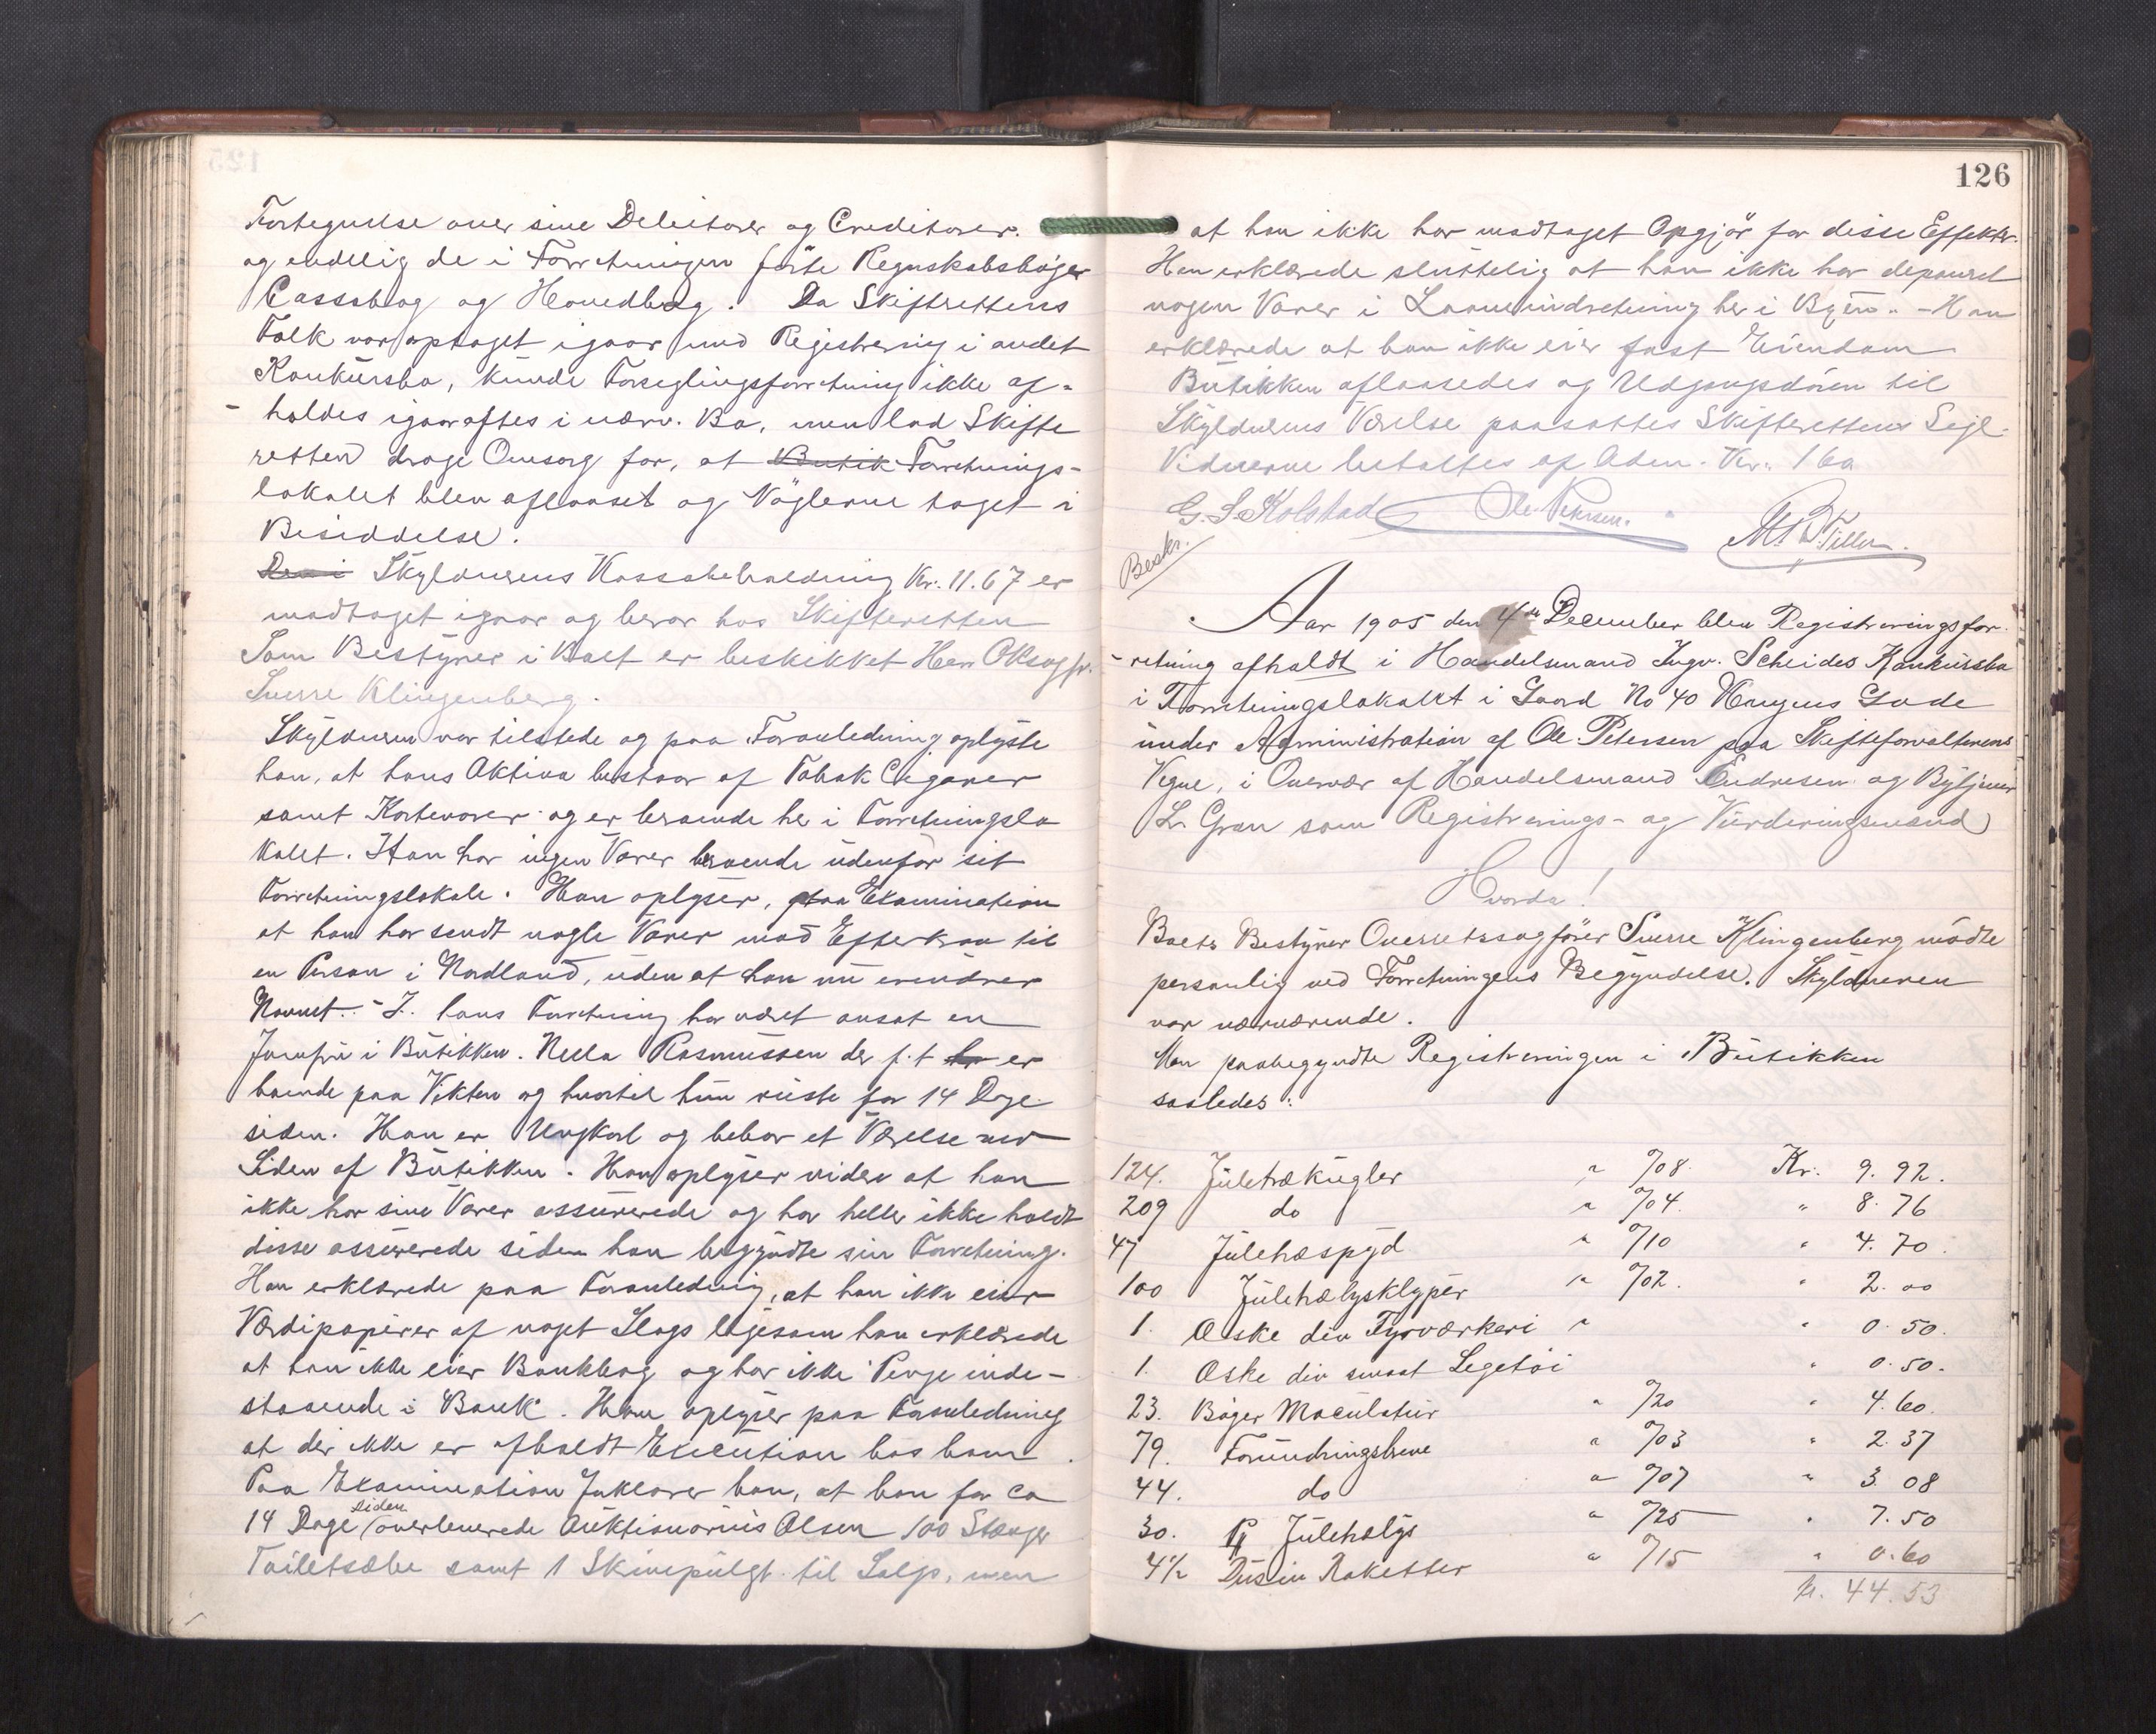 Fortegnelse over sine Debitorer og Creditorer.
og endelig de i Forretningen førte Regnskabsbøger
Cassabog og Hovedbog. Da Skifterettens
Folk var optaget igaar med Registrering i andet
Konkursbo, kunde Forseglingsforretning ikke af-
holdes igaaraftes i nærv. Bo, men lod Skifte
retten drage Omsorg for, at Butik Forretnings-
lokalet blev aflaaset og Nøglerne taget i
Besiddelse.
Den i Skyldnerens Kassabeholdning Kr. 11.67 er
modtaget igaar og beror hos Skifteretten
Som Bestyrer i Boet er beskikket Herr ORsagfr.
Sverre Klingenberg.
Skyldneren var tilstede og paa Foranledning oplyste
han, at hans Aktiva bestaar af Tobak Cigarer
samt Kortevarer og er beroende her i Forretningslo
kalet. Han har ingen Varer beroende udenfor sit
Forretningslokale. Han oplyser, paa Examination
at han har sendt nogle Varer mod Efterkrav til
en Person i Nordland, uden at han nu erindrer
Navnet. - I hans Forretning har været ansat en
Jomfru i Butikken. Nella Rasmussen der p.t. er
boende paa Vikten og hvortil hun reiste for 14 Dage
siden. Han er Ungkarl og bebor et Værelse ved
Siden af Butikken. Han oplyser videre at han
ikke har sine Varer assurerede og har heller ikke holdt
disse assurerede siden han begyndte sin Forretning.
Han erklærede paa Foranledning, at han ikke eier
Værdipapirer af noget Slags ligesom han erklærede
at han ikke eier Bankbog og har ikke Penge inde-
staaende i Bank. Han oplyser paa Foranledning
at der ikke er afholdt Execution hos ham.
Paa Examination forklarer han, at han for ca
14 Dage siden overleverede Auktionarius Olsen 100 Stænger
Toiletsæbe samt 1 Skindpulgt til Salgs, men
126
at han ikke har modtaget Opgjør for disse Effekter.
Han erklærede sluttelig at han ikke har deponeret
nogen Varer i Laaneindretning her i Byen. - Han
erklærede at han ikke eier fast Eiendom
Butikken aflaasedes og Udgangsdøren til
Skyldnerens Værelse paasattes Skifterettens Segl.
Vidnerne betaltes af Adm. Kr. 1 60
G. S. Kolstad Ole Petersen. M. D. Tiller.
Beskr.
Aar 1905 den 4de December blev Registreringsfor-
retning afholdt i Handelsmand Ingv. Scheides Konkursbo
i Forretningslokalet i Gaard No 40 Kongens Gade
under Administration af Ole Petersen paa Skifteforvalterens
Vegne, i Overvær af Handelsmand Endresen og Bytjener
L. Gran som Registrerings- og Vurderingsmænd
Hvorda!
Boets Bestyrer Overretssagfører Sverre Klingenberg mødte
personlig ved Forretningens Begyndelse. Skyldneren
var nærværende.
Man paabegyndte Registreringen i Butikken
saaledes:
124. Juletrækugler a %08 Kr. 9. 92.
209 do a %04. " 8. 76
47 Juletræspyd a %10 " 4. 70.
100 Juletrælysklyper a %02. " 2. 00
1. Æske div Fyrværkeri a " 0. 50.
1. Æske div smaat Legetøi " 0. 50.
23. Bøger Maculatur a %20 " 4. 60.
79. Forundringsbreve a %03 " 2. 37
44. do a %07 " 3 08
30. Pk Juletrælys a %25 " 7. 50
4 1/2 Dusin Raketter a %15 " 0. 60
Kr. 44. 53